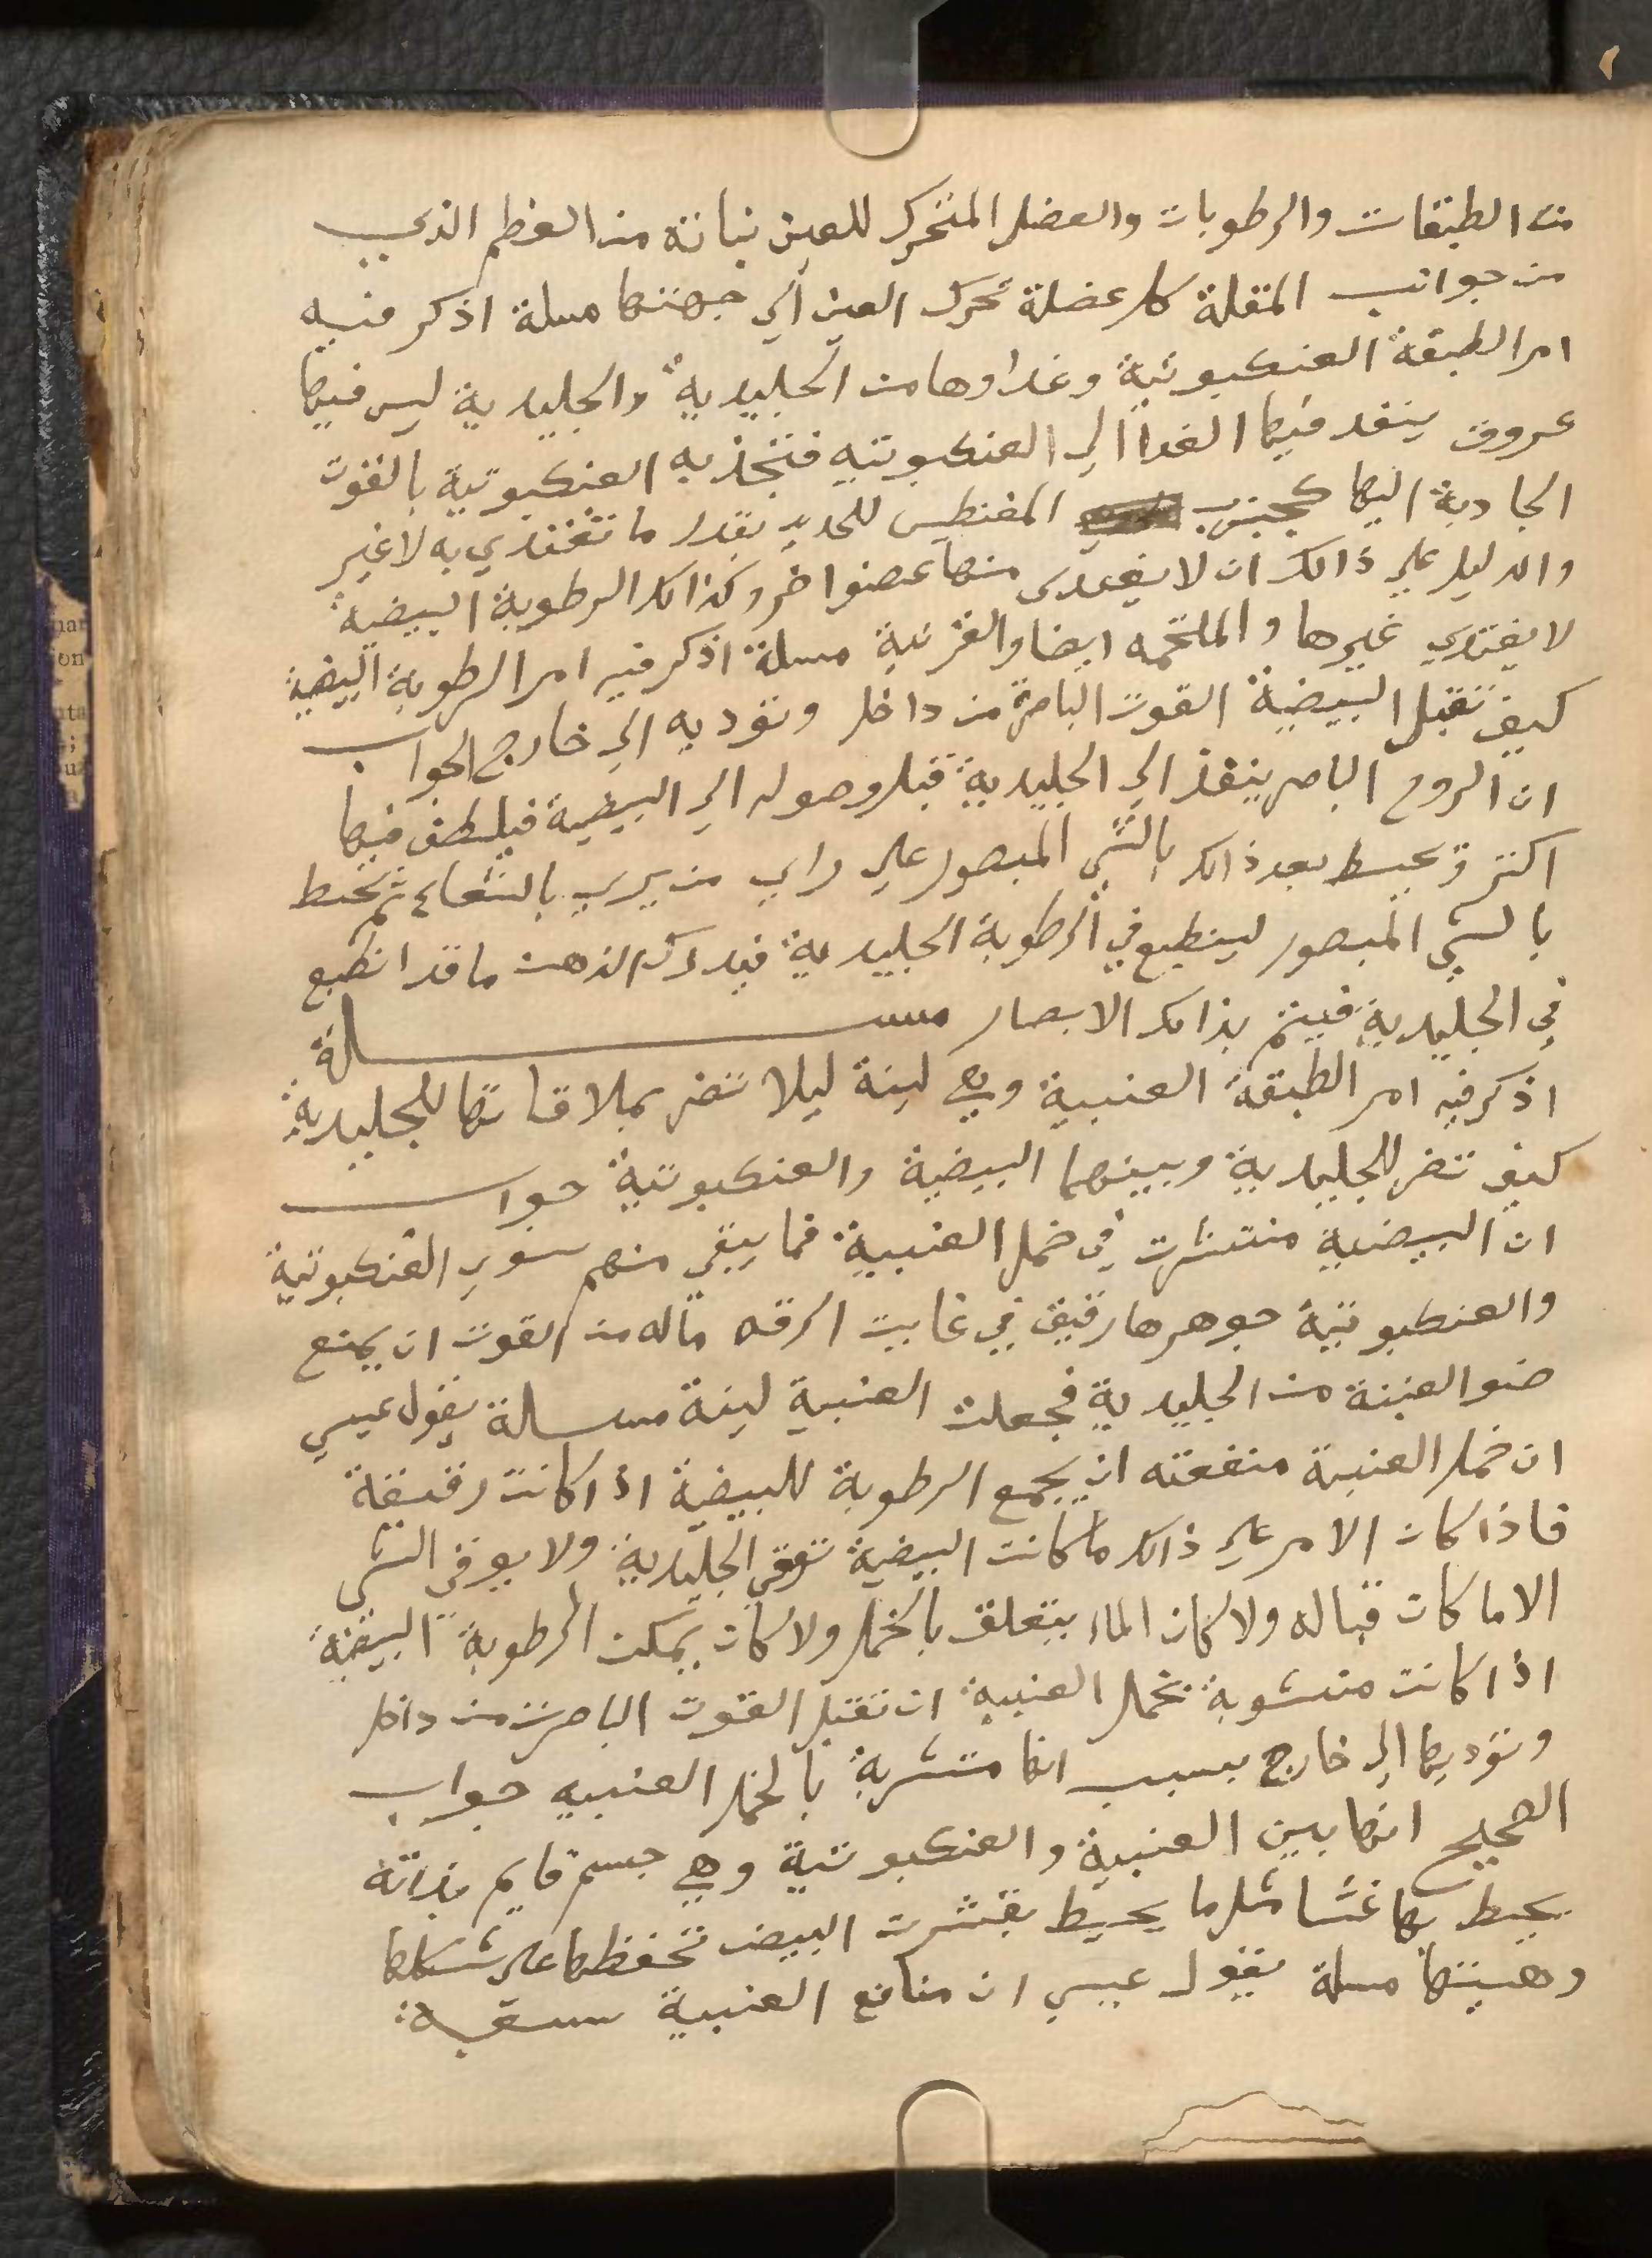 من الطبقات والرطوبات والعضل المتحرك للعين نباته من العظم الذي
من جوانب المقلة كل عضلة تحرك العين الي جهتها مسلة اذكر فيه
امر الطبقة العنكبوتية وغداوها من الجليدية والجليدية ليس فيها
عروق ينفد فيها الغدا الي العنكبوتيه فتجذبه العنكبوتية بالقوت
الجادبة اليها كجذب المغنطيس للحديد بقدر ما تغتدي به لا غير
والدليل علي ذالك ان لا يغتدي منها عضوا اخر وكذالك الرطوبة البيضية
لا يغتدي غيرها والملتحمه ايضا والقرنية مسلة اذكر فيه امر الرطوبة البيضية
كيف تقبل البيضية القوت الباصرة من داخل وتوديه الي خارج الجواب
ان الروح الباصر ينفذ الي الجليدية قبل وصوله الي البيضية فيلطف فيها
اكتر وتحيط بعد ذالك بالشي المبصور علي راي من يري بالشعاع ثم تحيط
بالشي المبصور لينطبع في الرطوبة الجليدية فيدرك الذهن ما قد انطبع
في الجليدية فيتم بذالك الابصار مســـلة
اذكر فيه امر الطبقة العنبية وهي لينة ليلا تضر بملاقاتها للجليدية
كيف تضر للجليدية وبينهما البيضية والعنكبوتية جواب
ان البيضية منتشرت في خمل العنبية فما يبقي منهم سوي العنكبوتية
والعنكبوتية جوهرها رقيق في غايت الرقه ماله من القوت ان يمنع
ضو العنبة من الجليدية فجعلت العنبية لينة مســلة يقول عيسي
ان خمل العنبية منفعته ان يجمع الرطوبة للبيضية اذا كانت رقيقة
فاذا كان الامر علي ذالك ما كانت البيضية توقي الجليدية ولا يوفي الشي
الا ما كان قباله ولا كان الما يتعلق بالخمل ولا كان يمكن الرطوبة البيضية
اذا كانت منشوبة بخمل العنبية ان تقبل القوت الباصرت من داخل
وتوديها الي خارج بسبب انها متشربة بالخمل العنبيه جواب
الصحيح انها بين العنبية والعنكبوتية وهي جسم قايم بذاته
يحيط بها غشا مثل ما يحيط بقشرت البيض تحفظها علي شكلها
وهيتها مسلة يقول عيسي ان منافع العنبية